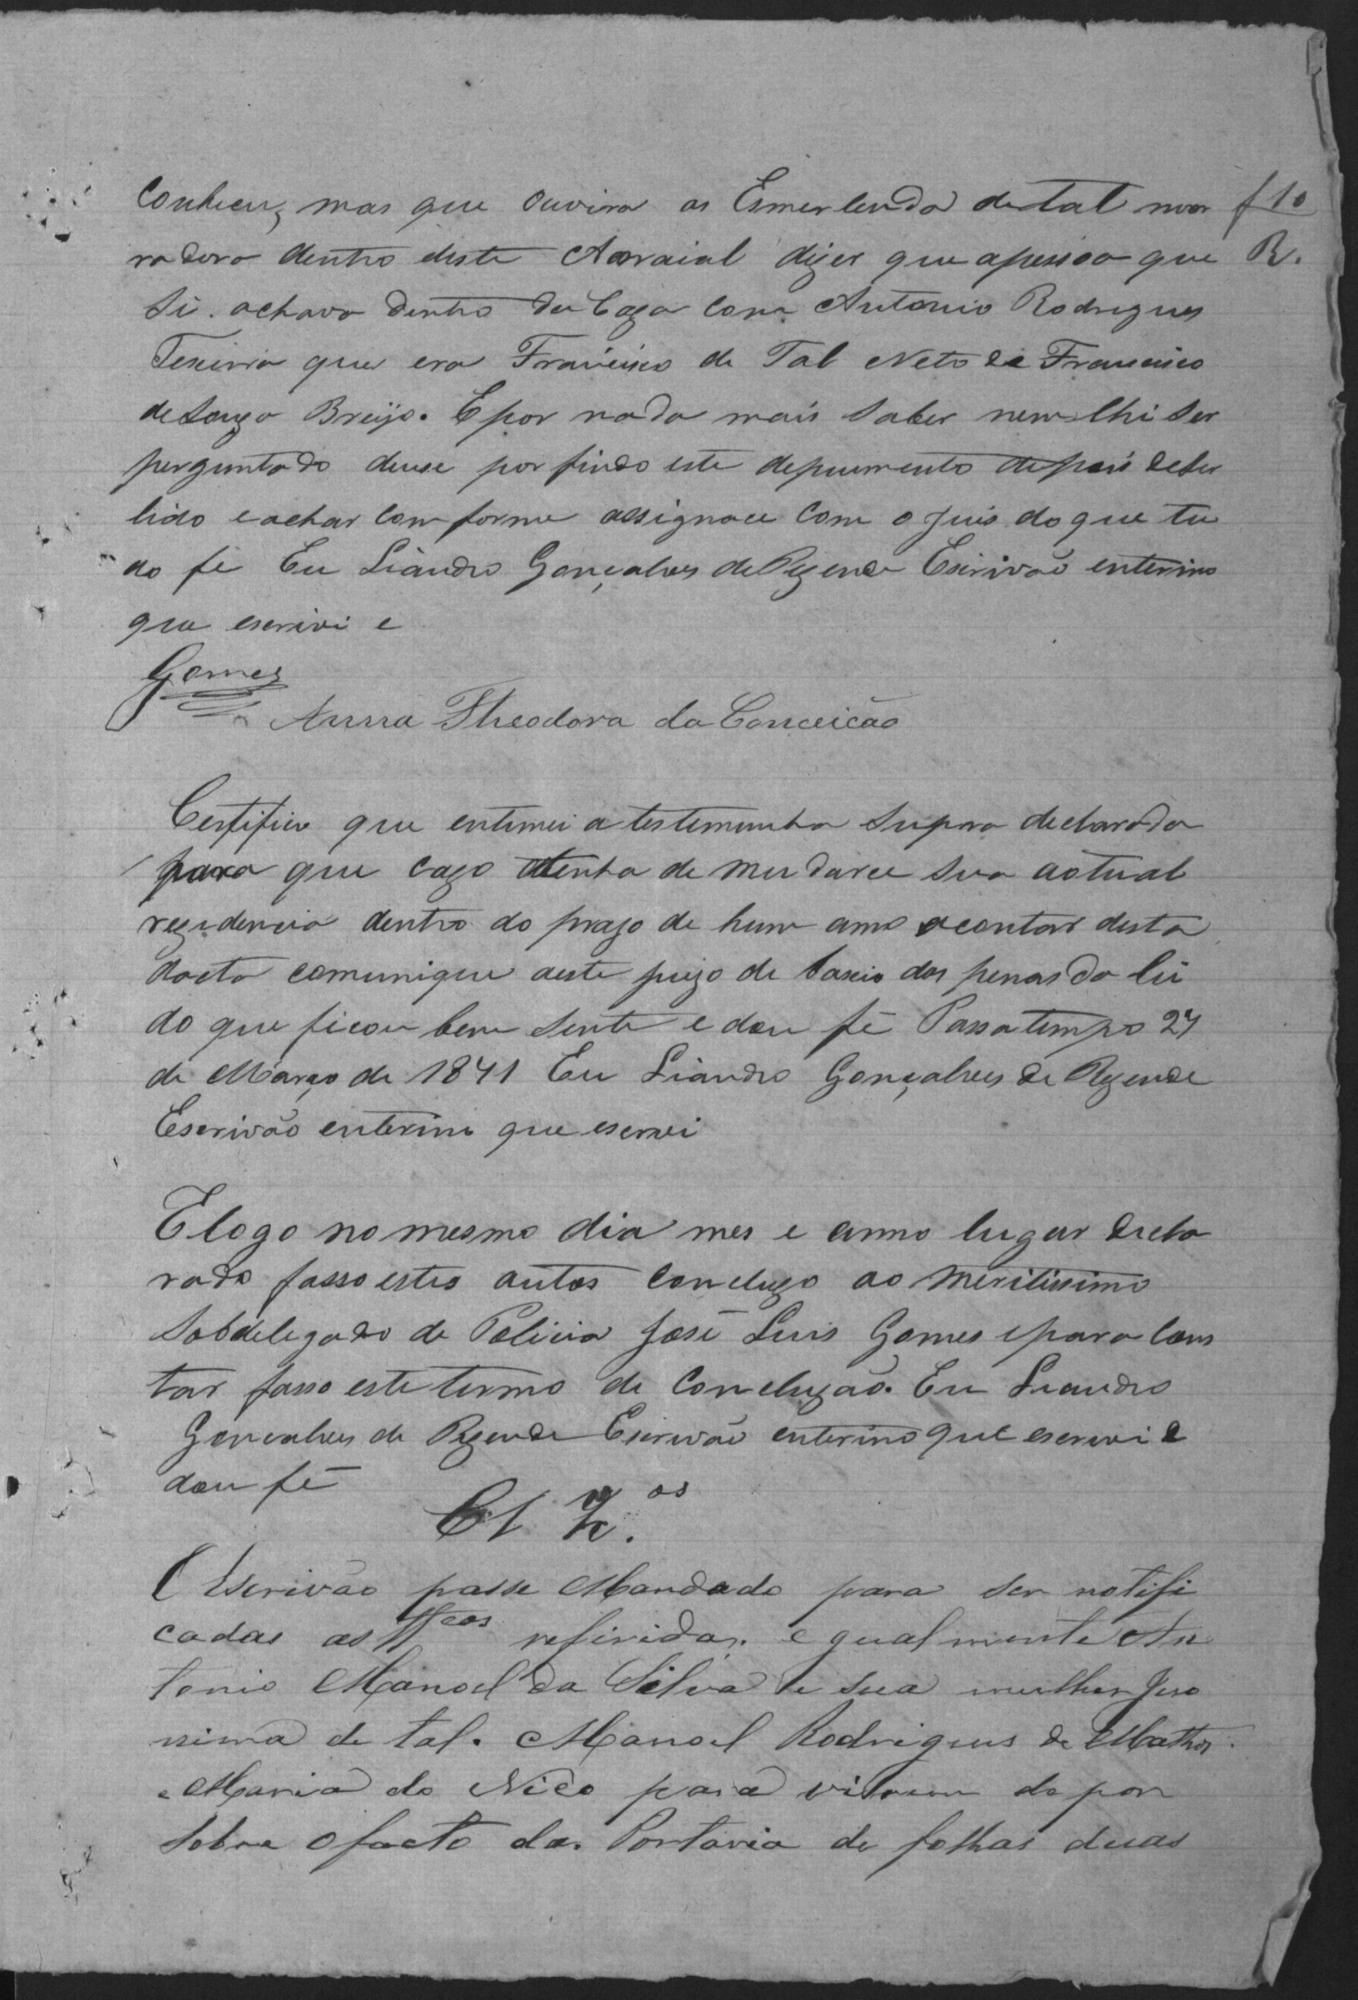 Conheceu, mas que ouvira as Esmerlenda de tal mo f 10
radora dentro deste Arraial dizer que apessoa que R.
si. achava dentro da Caza com Antonio Rodrigues
que era Francisco de Tal Neto de Francisco
de Souza Breijo. E por nada mais saber nem lhi ser
perguntado deuse por findo este depuimento depois deser
lido e achar com forme assignace com o Juis do que tu
do fé Eu Liandro Gonçalves de Rezende Escrivão enterino
que escrivi e
Gomes
Anna Theodora da Conceicão
Certifico que entimei a testemunha supra declarada
para que cazo tenha de mudarce sua actual
rezidencia dentro do prazo de hum anno acontar desta
dacta comunique aeste juizo de baxio das penas da lei
do que ficou bem sente e dou fé Passatempo 27
de Março de 1891 Eu Liandro Gonçalves de Rezende
Escrivão enterino que escrevi
E logo no mesmo dia mes e anno lugar decla
rado fasso estes autos concluzo ao Meritissimo
Sobdelegado de Policia José Luis Gomes epara cons
tar fasso este termo de Concluzão. Eu Leandro
Goncalves de Rezende Escrivão enterino que escrevi e
dou fé
Cl.ᵒˢ
O Escrivão passe Mandado para ser notifi
cadas as referidas. egualmente An
tonio Manoel da Silva e sua mulher Jero
nima de tal. Manoel Rodrigues de Mathos
e Maria do Nico para virem depor
sobre o facto da Portaria de folhas duas